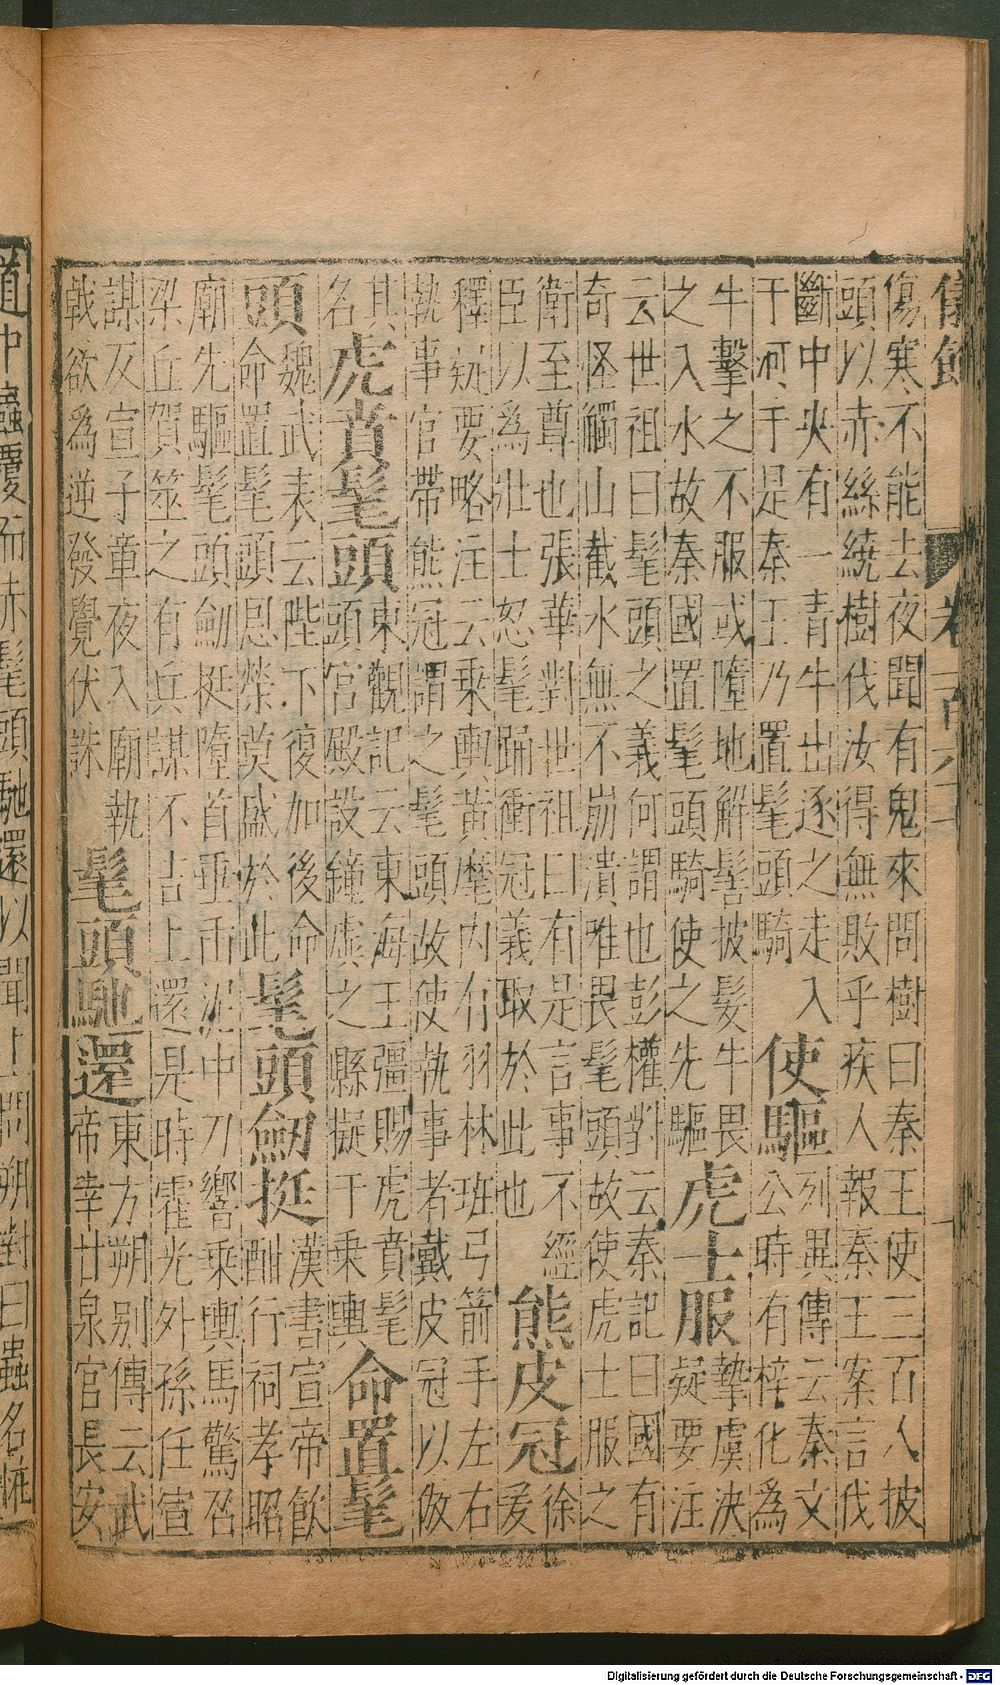 儀飾 卷一百六十
傷寒不能去夜聞有鬼來問樹曰秦王使三百人披
頭以赤絲繞樹伐汝得無敗乎疾人報秦王案言伐
斷中央有一青牛出逐之走入
于河于是秦王乃置髦頭騎
使驅
列異傳云秦文
公時有梓化為
牛擊之不服或墮地解髻披髮牛畏
之入水故秦國置髦頭騎使之先驅
虎士服
摯虞決
疑要注
云世祖曰髦頭之義何謂也彭權對云秦記曰國有
奇怪觸山截水無不崩潰唯畏髦頭故使虎士服之
衛至尊也張華對世祖曰有是言事不經
臣以為壯士怒髦踊衝冠義取於此也
熊皮冠
徐
爰
釋疑要略注云乘輿黃麾內有羽林班弓箭手左右
執事官帶熊冠謂之髦頭故使執事者戴皮冠以倣
其
名
虎首髦頭
東觀記云東海王彊賜虎賁髦
頭宮殿設鐘虡之縣擬于乘輿
命置髦
頭
魏武表云陛下復加後命
命置髦頭恩榮莫盛於此
髦頭劒挺
漢書宣帝飲
酎行祠孝昭
廟先驅髦頭劒挺墮首垂而泥中刀響乘輿馬驚召
梁丘賀筮之有兵謀不吉上還是時霍光外孫任宣
謀反宣子章夜入廟執
戟欲為逆發覺伏誅
髦頭馳還
東方朔別傳云武
帝幸甘泉宮長安
道中蟲覆而赤髦頭馳還以聞上問朔對曰蟲名怪
Digitalisierung gefördert durch die Deutsche Forschungsgemeinschaft - DFG